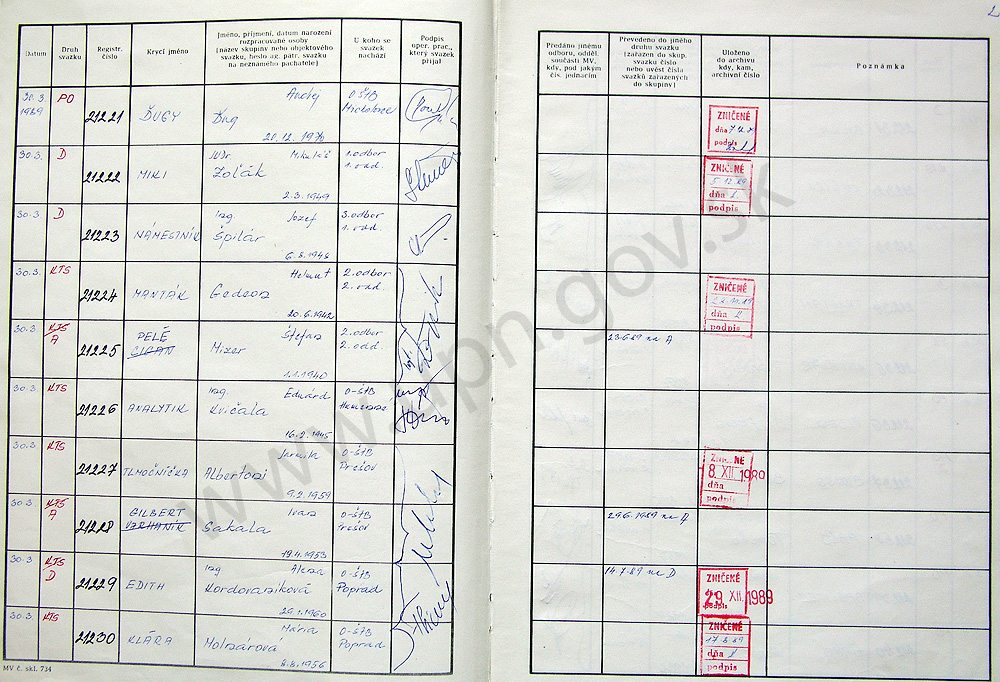 Datum
Druh
svazku
Registr.
číslo
Krycí jméno
Jméno, příjmení, datum narození
rozpracované osoby
(název skupiny nebo objektového
svazku, heslo ag. pátr. svazku
na neznámého pachatele)
U koho se
svazek
nachází
Podpis
oper. prac.,
který svazek
přijal
30. 3.
1989
PO
21221
ĎUGY
Andrej
Ďug
20.12.1970
O-ŠtB
Michalovce
30.3.
D
21222
MIKI
JUDr
Mikuláš
Zoľák
2.3.1949
1. odbor
30.3
D
21223
NÁMESTNÍK
Ing.
Jozef
Špilár
3. odbor
30.3.
KTS
21224
MANTÁK
Helmut
Gedeon
20.6.1942
2. odbor
30.3.
KTS
A
21225
PELÉ
CIGAN
Štefan
Mizer
1.1.1940
2. odbor
2. odd.
30.3.
KTS
21226
ANALYTIK
Ing.
Eduárd
Kvičala
16.2.1945
O-ŠtB
Humenné
30.3
KTS
21227
TLMOČNÍČKA
Jarmila
Albertoni
9.2.1959
O-ŠtB
Prešov
30.3
KTS
A
21228
GILBERT
Ivan
Sakala
19.4.1953
O-ŠtB
Prešov
30.3
KTS
D
21229
EDITH
Ing
Alena
Kordovaníková
29.1.1960
O-ŠtB
Poprad
30.3.
KTS
21230
KLÁRA
Mária
Molnárová
8.8.1956
O-ŠtB
Poprad
MV č. skl. 734
Předáno jinému
odboru, odděl.
součásti MV,
kdy, pod jakým
čís. jednacím
Převedeno do jiného
druhu svazku
(zařazen do skup.
svazku číslo
nebo uvést čísla
svazků zařazených
do skupiny)
Uloženo
do archivu
kdy, kam,
archivní číslo
Poznámka
ZNIČENÉ
dňa
podpis
ZNIČENÉ
5.12.89
dňa
podpis
ZNIČENÉ
dňa
podpis
23.6.89 na A
ZNIČENÉ
8. XII 1989
dňa
podpis
29.6.1989 na A
14.7.89 na D
ZNIČENÉ
29. XII. 1989
podpis
ZNIČENÉ
dňa
podpis
www.upn.gov.sk